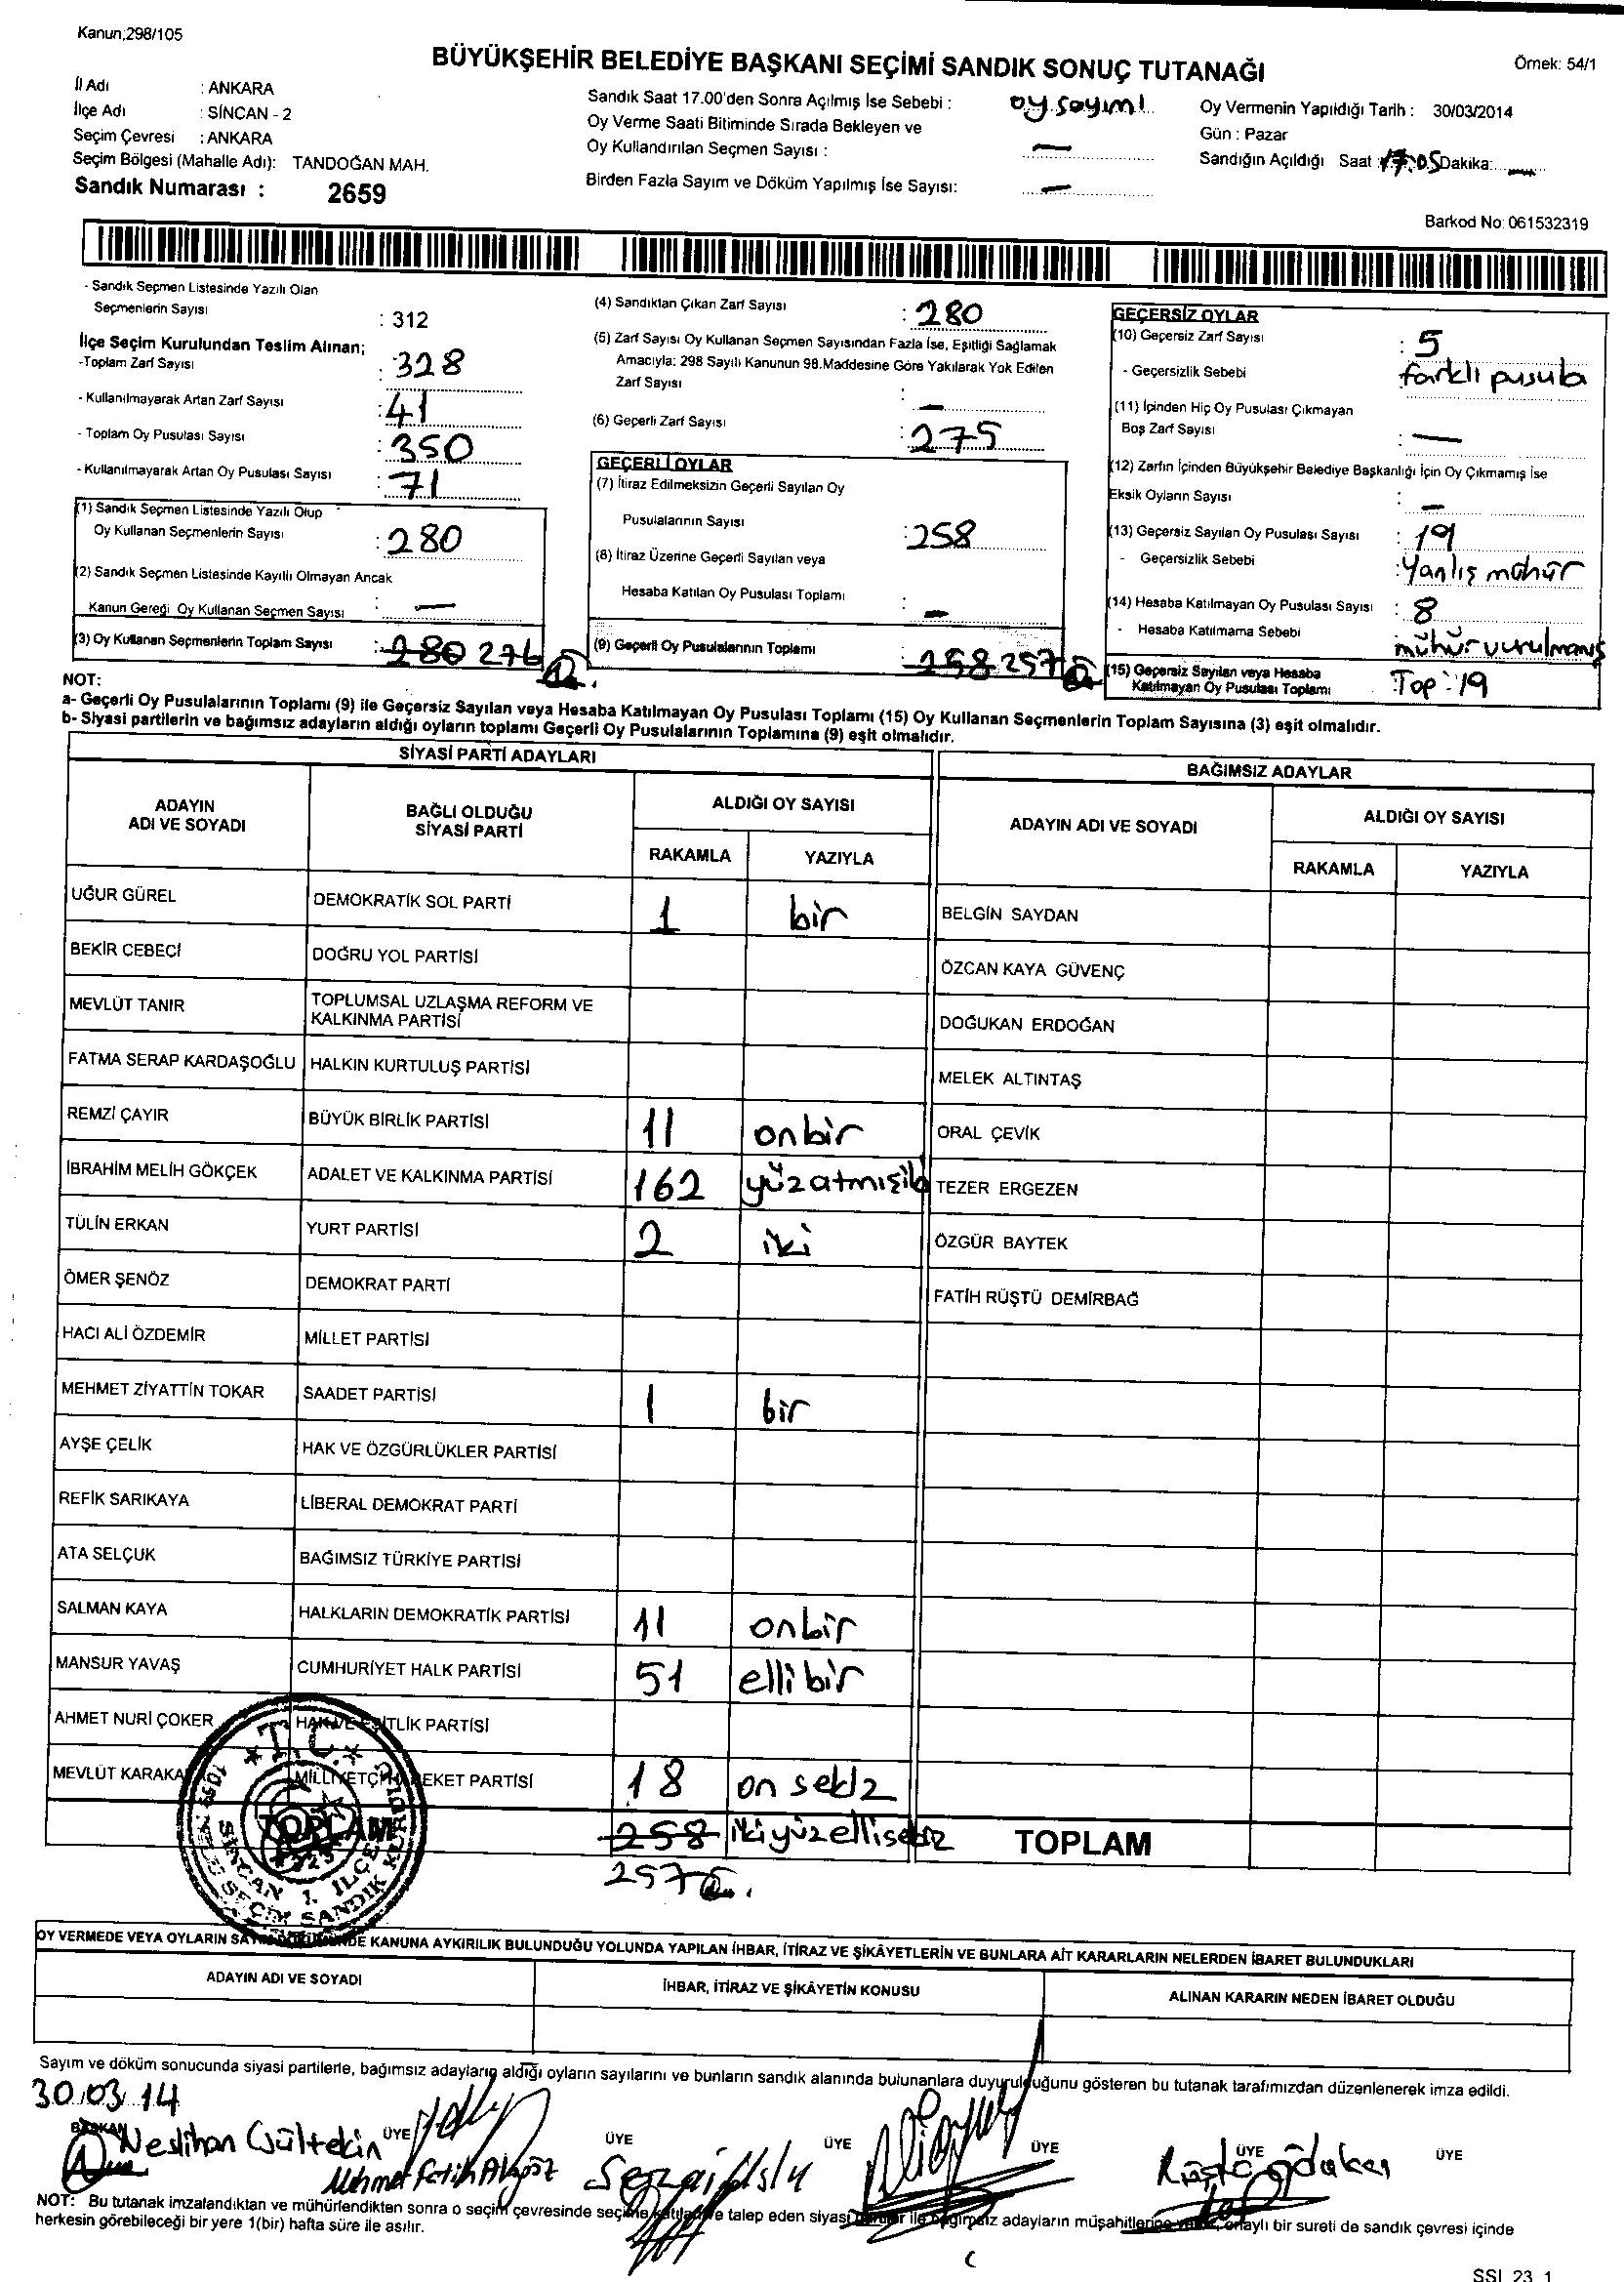 Kanun;298/105
BÜYÜKŞEHİR BELEDİYE BAŞKANI SEÇİMİ SANDIK SONUÇ TUTANAĞI
Örnek: 54/1
İl Adı : ANKARA
İlçe Adı : SİNCAN - 2
Seçim Çevresi : ANKARA
Seçim Bölgesi (Mahalle Adı): TANDOĞAN MAH.
Sandık Numarası : 2659
Sandık Saat 17.00'den Sonra Açılmış İse Sebebi : oy sayımı
Oy Verme Saati Bitiminde Sırada Bekleyen ve
Oy Kullandırılan Seçmen Sayısı : —
Birden Fazla Sayım ve Döküm Yapılmış İse Sayısı: —
Oy Vermenin Yapıldığı Tarih : 30/03/2014
Gün : Pazar
Sandığın Açıldığı Saat : 17:05 Dakika: —
Barkod No: 061532319
- Sandık Seçmen Listesinde Yazılı Olan
Seçmenlerin Sayısı : 312
İlçe Seçim Kurulundan Teslim Alınan;
-Toplam Zarf Sayısı : 328
- Kullanılmayarak Artan Zarf Sayısı : 41
- Toplam Oy Pusulası Sayısı : 350
- Kullanılmayarak Artan Oy Pusulası Sayısı : 71
(1) Sandık Seçmen Listesinde Yazılı Olup
Oy Kullanan Seçmenlerin Sayısı : 280
(2) Sandık Seçmen Listesinde Kayıllı Olmayan Ancak
Kanun Gereği Oy Kullanan Seçmen Sayısı : —
(3) Oy Kullanan Seçmenlerin Toplam Sayısı : 280 276
(4) Sandıktan Çıkan Zarf Sayısı : 280
(5) Zarf Sayısı Oy Kullanan Seçmen Sayısından Fazla İse, Eşitliği Sağlamak
Amacıyla: 298 Sayılı Kanunun 98.Maddesine Göre Yakılarak Yok Edilen
Zarf Sayısı : —
(6) Geçerli Zarf Sayısı : 275
GEÇERLİ OYLAR
(7) İtiraz Edilmeksizin Geçerli Sayılan Oy
Pusulalarının Sayısı : 258
(8) İtiraz Üzerine Geçerli Sayılan veya
Hesaba Katılan Oy Pusulası Toplamı : —
(9) Geçerli Oy Pusulalarının Toplamı : 258 257
GEÇERSİZ OYLAR
(10) Geçersiz Zarf Sayısı : 5
- Geçersizlik Sebebi : farklı pusula
(11) İçinden Hiç Oy Pusulası Çıkmayan
Boş Zarf Sayısı : —
(12) Zarfın İçinden Büyükşehir Belediye Başkanlığı İçin Oy Çıkmamış İse
Eksik Oyların Sayısı : —
(13) Geçersiz Sayılan Oy Pusulası Sayısı : 19
- Geçersizlik Sebebi : Yanlış mühür
(14) Hesaba Katılmayan Oy Pusulası Sayısı : 8
- Hesaba Katılmama Sebebi mühür vurulmamış
(15) Geçersiz Sayılan veya Hesaba
Katılmayan Oy Pusulası Toplamı Top: 19
NOT:
a- Geçerli Oy Pusulalarının Toplamı (9) ile Geçersiz Sayılan veya Hesaba Katılmayan Oy Pusulası Toplamı (15) Oy Kullanan Seçmenlerin Toplam Sayısına (3) eşit olmalıdır.
b- Siyasi partilerin ve bağımsız adayların aldığı oyların toplamı Geçerli Oy Pusulalarının Toplamına (9) eşit olmalıdır.
SİYASİ PARTİ ADAYLARI
BAĞIMSIZ ADAYLAR
ADAYIN ADI VE SOYADI
BAĞLI OLDUĞU SİYASİ PARTİ
ALDIĞI OY SAYISI
RAKAMLA YAZIYLA
ADAYIN ADI VE SOYADI
ALDIĞI OY SAYISI
RAKAMLA YAZIYLA
UĞUR GÜREL DEMOKRATİK SOL PARTİ 1 bir BELGİN SAYDAN
BEKİR CEBECİ DOĞRU YOL PARTİSİ ÖZCAN KAYA GÜVENÇ
MEVLÜT TANIR TOPLUMSAL UZLAŞMA REFORM VE KALKINMA PARTİSİ DOĞUKAN ERDOĞAN
FATMA SERAP KARDAŞOĞLU HALKIN KURTULUŞ PARTİSİ MELEK ALTINTAŞ
REMZİ ÇAYIR BÜYÜK BİRLİK PARTİSİ 11 onbir ORAL ÇEVİK
İBRAHİM MELİH GÖKÇEK ADALET VE KALKINMA PARTİSİ 162 yüzatmışiki TEZER ERGEZEN
TÜLİN ERKAN YURT PARTİSİ 2 iki ÖZGÜR BAYTEK
ÖMER ŞENÖZ DEMOKRAT PARTİ FATİH RÜŞTÜ DEMİRBAĞ
HACI ALİ ÖZDEMİR MİLLET PARTİSİ
MEHMET ZİYATTİN TOKAR SAADET PARTİSİ 1 bir
AYŞE ÇELİK HAK VE ÖZGÜRLÜKLER PARTİSİ
REFİK SARIKAYA LİBERAL DEMOKRAT PARTİ
ATA SELÇUK BAĞIMSIZ TÜRKİYE PARTİSİ
SALMAN KAYA HALKLARIN DEMOKRATİK PARTİSİ 11 onbir
MANSUR YAVAŞ CUMHURİYET HALK PARTİSİ 51 ellibir
AHMET NURİ ÇOKER HAK VE EŞİTLİK PARTİSİ
MEVLÜT KARAKA MİLLİYETÇİ HAREKET PARTİSİ 18 on sekiz
TOPLAM 258 ikiyüzellisekiz TOPLAM
257
T.C. SİNCAN 1. İLÇE SEÇİM SANDIK KURULU
OY VERMEDE VEYA OYLARIN SAYIM DÖKÜMÜNDE KANUNA AYKIRILIK BULUNDUĞU YOLUNDA YAPILAN İHBAR, İTİRAZ VE ŞİKÂYETLERİN VE BUNLARA AİT KARARLARIN NELERDEN İBARET BULUNDUKLARI
ADAYIN ADI VE SOYADI İHBAR, İTİRAZ VE ŞİKÂYETİN KONUSU ALINAN KARARIN NEDEN İBARET OLDUĞU
Sayım ve döküm sonucunda siyasi partilerle, bağımsız adayların aldığı oyların sayılarını ve bunların sandık alanında bulunanlara duyurulduğunu gösteren bu tutanak tarafımızdan düzenlenerek imza edildi.
30.03.14
BAŞKAN ÜYE ÜYE ÜYE ÜYE ÜYE ÜYE
Neslihan Gültekin
Mehmet Fatih Akgöz
NOT: Bu tutanak imzalandıktan ve mühürlendikten sonra o seçim çevresinde seçime katılan ve talep eden siyasi partiler ile bağımsız adayların müşahitlerine onaylı bir sureti de sandık çevresi içinde
herkesin görebileceği bir yere 1(bir) hafta süre ile asılır.
SSI 23 1